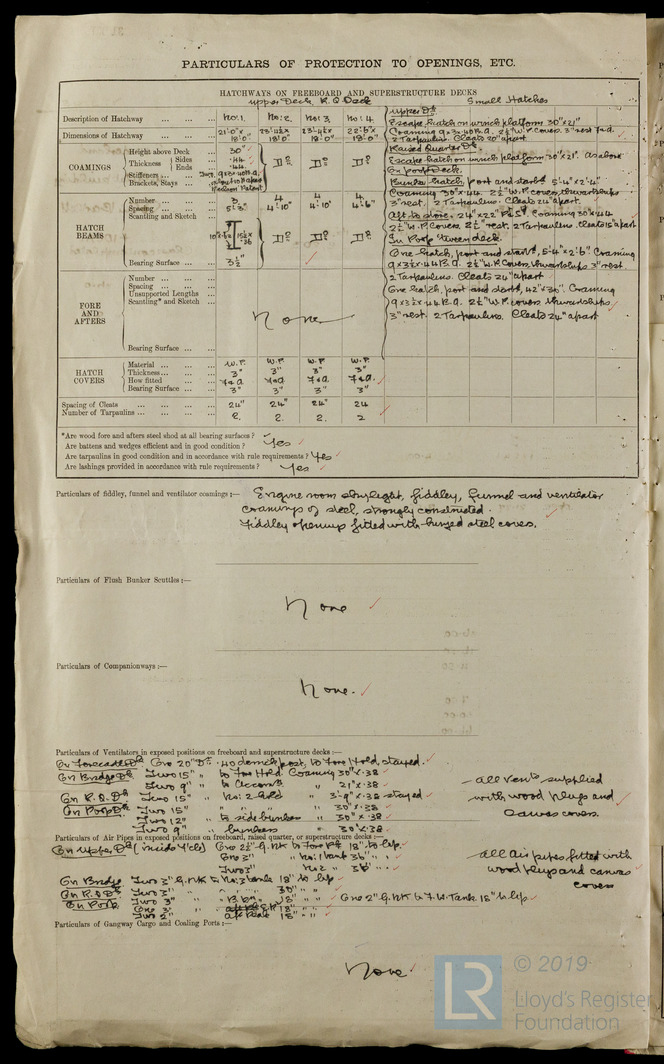 PARTICULARS OF PROTECTION TO OPENINGS, ETC.
HATCHWAYS ON FREEBOARD AND SUPERSTRUCTURE DECKS
upper Deck R.Q Deck Small Hatches
Description of Hatchway ... No: 1. No: 2. No: 3 No: 4.
Dimensions of Hatchway ... 18'0" 18'0" 18'0" 18'0"
COAMINGS
Height above Deck ... 30"
Thickness Sides ... .44
Ends ... .44
Stiffeners ...
Brackets, Stays ...
Do Do Do
HATCH BEAMS
Number ... 3 4 4 4
Spacing ... 5'3" 4'10" 4'10" 4'6"
Scantling and Sketch
Do Do Do
Bearing Surface ... 3½"
FORE AND AFTERS
Number ...
Spacing ...
Unsupported Lengths ...
Scantling* and Sketch ...
None
Bearing Surface ...
HATCH COVERS
Material ... W.P. W.P. W.P. W.P.
Thickness ... 3" 3" 3" 3"
How fitted ... F&A F&A F&A F&A.
Bearing Surface ... 3" 3" 3" 3"
Spacing of Cleats ... 24" 24" 24" 24
Number of Tarpaulins ... 2. 2. 2. 2
upper Dk
Escape hatch on winch platform 30"x21"
Coaming 9x3x.40 B.A. 2½" W.P. Covers. 3" rest F&A.
2 Tarpaulins. Cleats 20" apart
Raised Quarter Dk.
Escape hatch on winch platform 30"x21". as above
On poop Deck.
Bunker hatch, port and starbd 5'4"x2'4"
Coaming 30"x.44. 2½" W.P. covers, thwartships
3" rest. 2 Tarpaulins. Cleats 24" apart.
Aft. to store. 24"x22" Coaming 30"x.44
2½" W.P. Covers. 2½" rest. 2 Tarpaulins. Cleats 15" apart
In Poop 'tween deck.
One hatch, port and starbd, 5'4"x2'6". Coaming
9x3½x.44 B.A. 2½" W.P. Covers, thwartships 3" rest
2 Tarpaulins. Cleats 24" apart
One hatch, port and starbd, 42"x30". Coaming
9x3½x.44 B.A. 2½" W.P. covers thwartships
3" rest. 2 Tarpaulins. Cleats 24" apart
*Are wood fore and afters steel shod at all bearing surfaces?
Are battens and wedges efficient and in good condition? Yes
Are tarpaulins in good condition and in accordance with rule requirements? Yes
Are lashings provided in accordance with rule requirements? Yes
Particulars of fiddley, funnel and ventilator coamings:— Engine room skylight, fiddley, funnel and ventilator
coamings of steel, strongly constructed.
Fiddley openings fitted with hinged steel covers.
Particulars of Flush Bunker Scuttles:—
None
Particulars of Companionways:—
None.
Particulars of Ventilators in exposed positions on freeboard and superstructure decks:—
On Forecastle Dk One 20" Dr. .40 derrick post, to Fore Hold, stayed.
On Bridge Dk Two 15" " to Fore Hold. Coaming 30"x.38
Two 9" " to Accomn " 21"x.38
On R.Q. Dk Two 15" " No: 2 Hold " 3'-9"x.38 stayed
On Poop Dk. Two 15" " " " " 30"x.38
Two 12" " to side bunker " 30"x.38
Two 9" " bunkers " 30"x.38.
all vents supplied
with wood plugs and
canvas covers.
Particulars of Air Pipes in exposed positions on freeboard, raised quarter, or superstructure decks:—
On Upper Dk (inside F'cle) One 2½" G.NK to Fore Pk 18" to lip.
One 3" " No: 1 tank 36" " "
Two 3" " No: 2 " 36" " "
On Bridge Two 3" G.NK to No: 3 tank 18" to lip
On R.Q Dk Two 3" " " " 30" " "
On Poop Two 3" " 18" " " One 2" G.NK to F.W. Tank 18" to lip
One 3" " 18" " "
Two 2" " aft Peak 18" " "
all Air pipes fitted with
wood plugs and canvas
covers
Particulars of Gangway Cargo and Coaling Ports:—
None
LR
© 2019
Lloyd's Register
Foundation